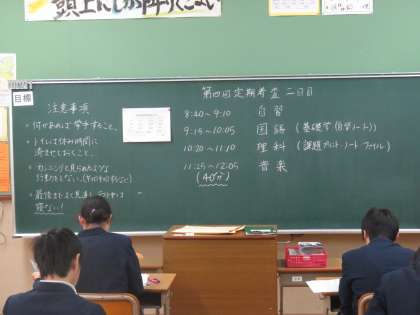 頭上にしか降りてこない
目標
第四回定期考査 二日目
注意事項
・何かあれば挙手すること。
・トイレは休み時間に
済ませておくこと。
・カンニングと見られるような
行動をしない。
・最後までよく見直し、テスト中は
寝ない!
8:40~9:10 自習
9:15~10:05 国語 (基礎学・自習ノート)
10:20~11:10 理科 (課題プリント・ノート・ファイル)
11:25~12:05 音楽
(40分)